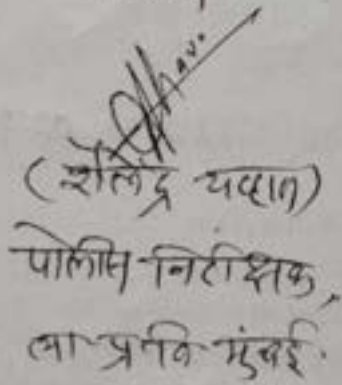 (शैलेंद्र चव्हाण)
पोलीस निरीक्षक,
ला प्र वि मुंबई.